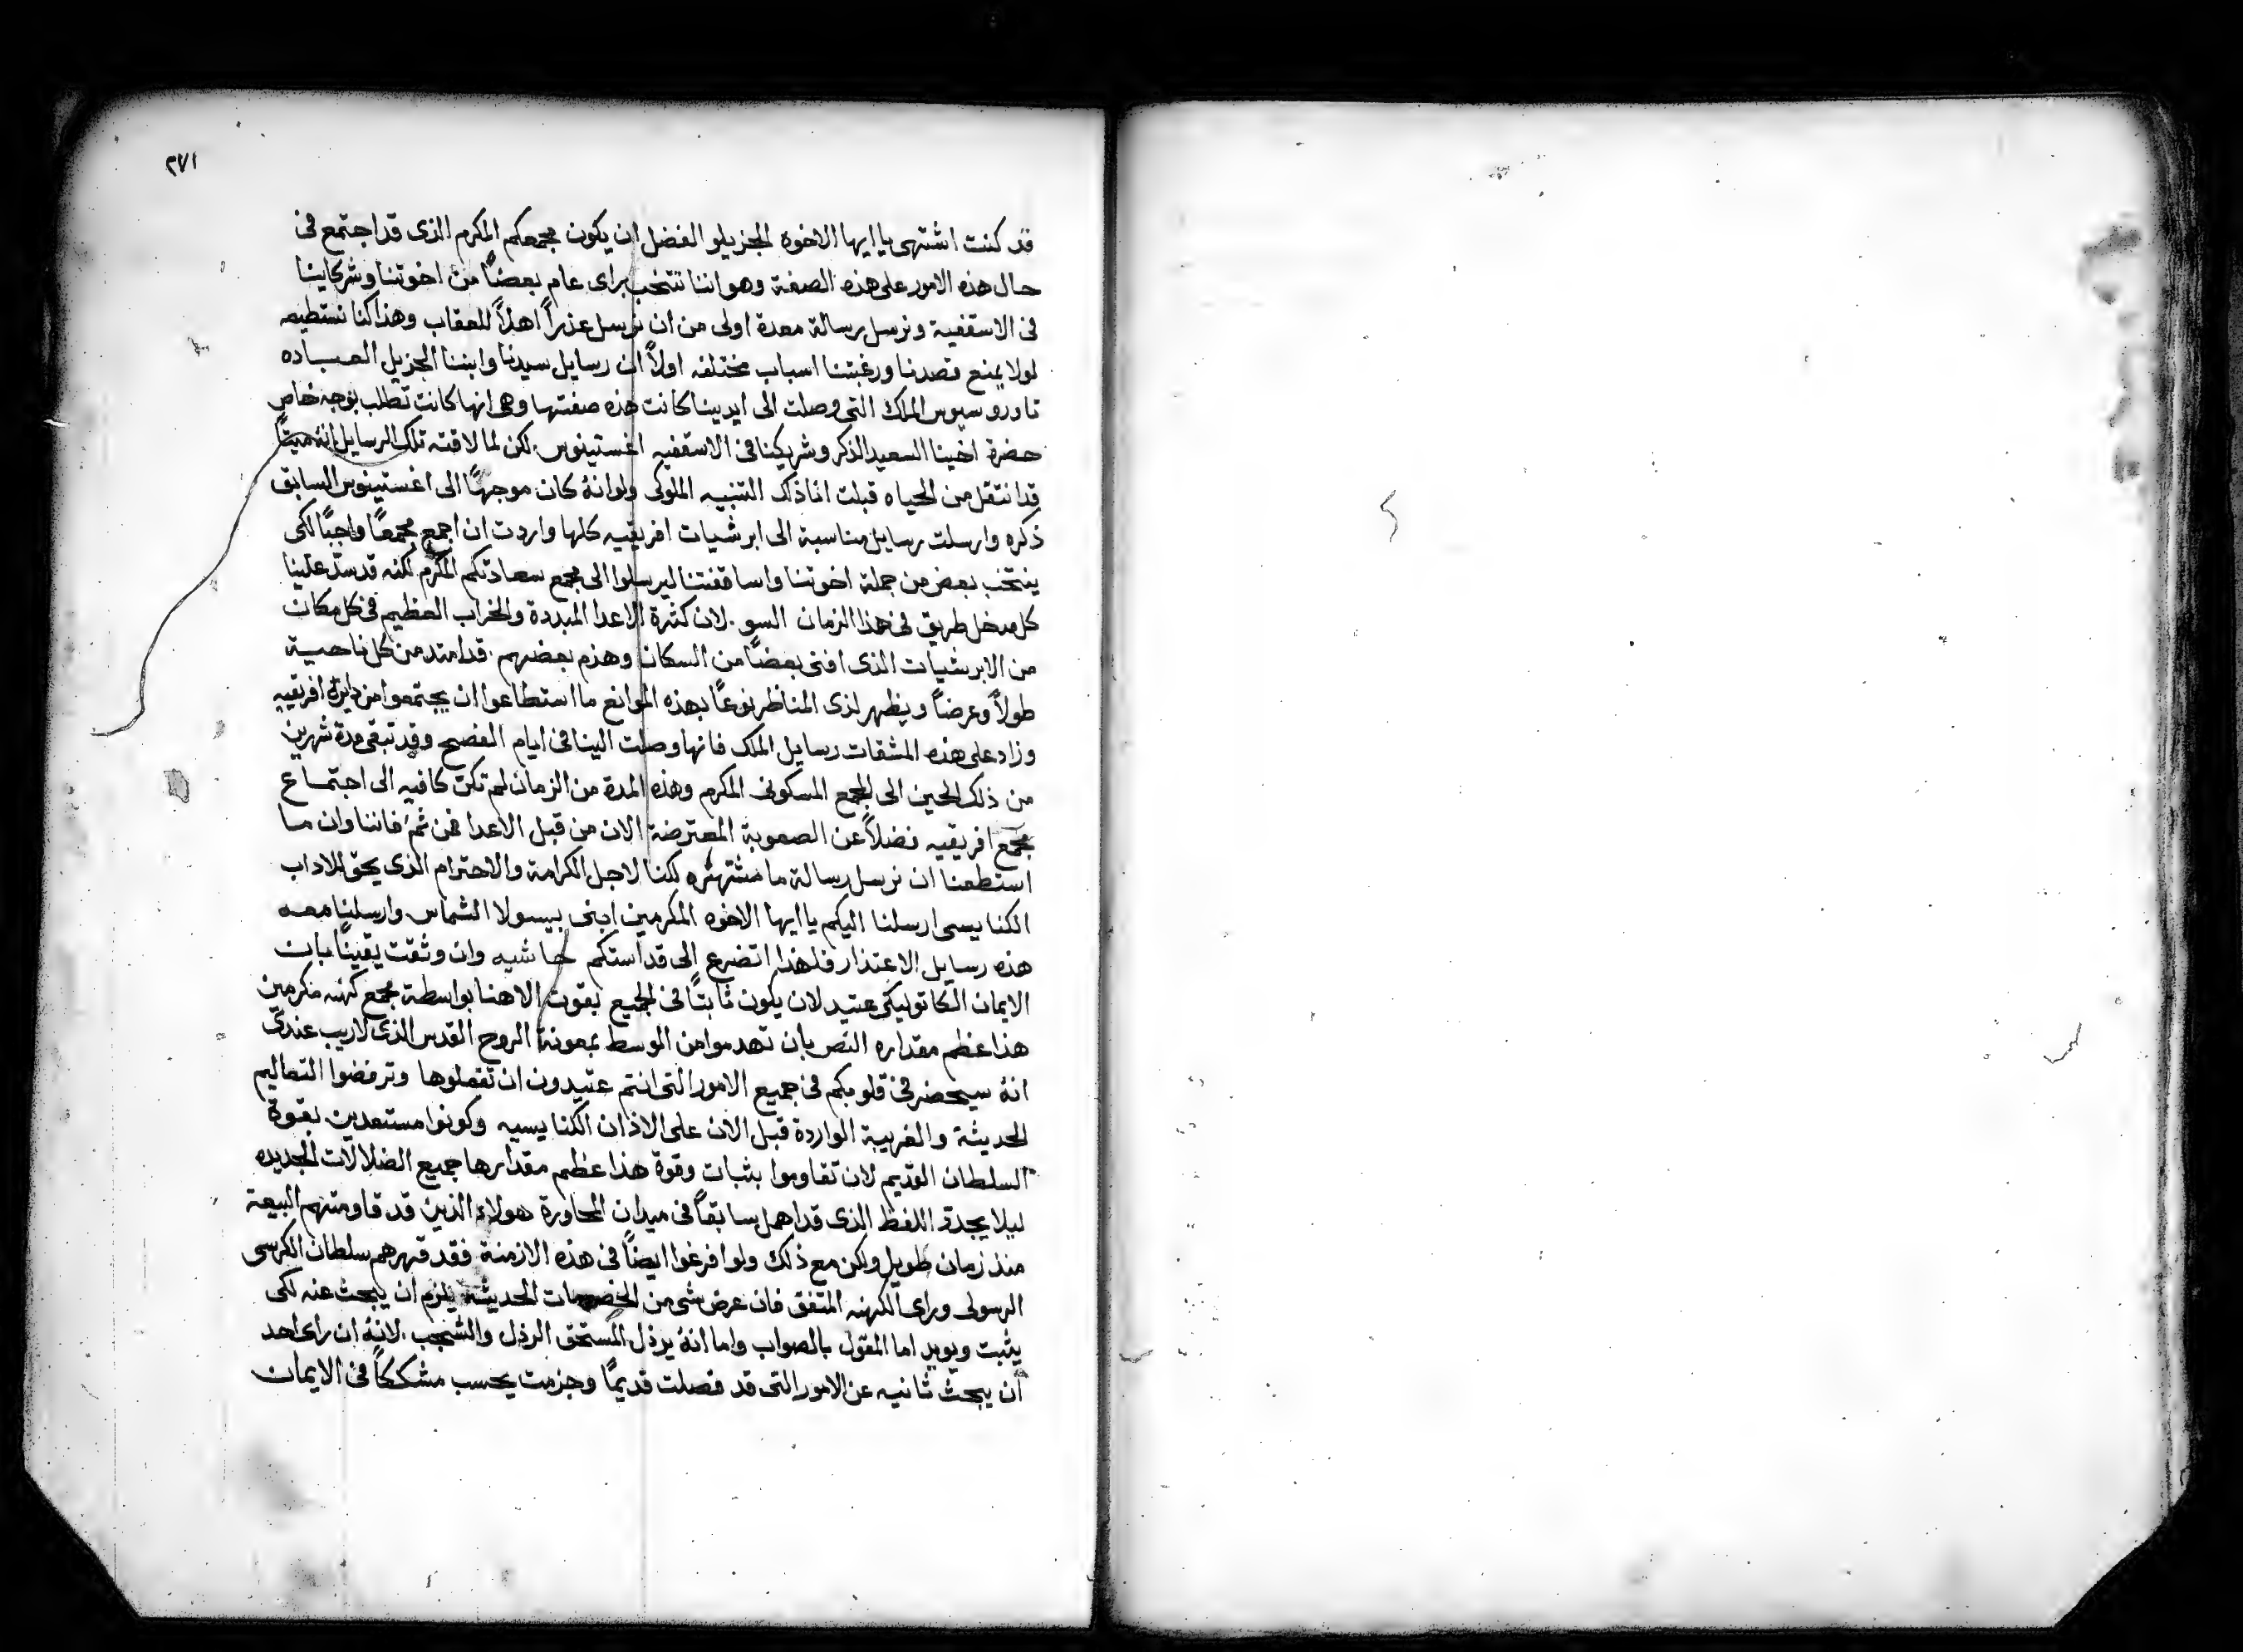 ٢٧١
قد كنت اشتهى يا ايها الاخوه الجزيلو الفضل ان يكون مجمعكم المكرم الذى قد اجتمع فى
حال هذه الامور على هذه الصفة وهو اننا ننتخب براى عام بعضاً من اخوتنا وشركاينا
فى الاسقفية ونرسل رسالة معدة اولى من ان نرسل عذراً اهلاً للعقاب وهذا كنا نستطيعه
لولا يمنع قصدنا ورغبتنا اسباب مختلفه اولاً ان رسايل سيدنا وابننا الجزيل العباده
تاورو سيوس الملك التى وصلت الى ايدينا كانت هذه صفتها وهى انها كانت تطلب بوجه خاص
حضرة اخينا السعيد الذكر وشريكنا فى الاسقفيه اغستينوس. لكن لما لاقته تلك الرسايل انه ميتاً
قد انتقل من الحياه قبلت انا ذلك التنبيه الملوكى ولو انهُ كان موجهاً الى اغستينوس السابق
ذكره وارسلت رسايل مناسبة الى ابرشيات افريقيه كلها واردت ان اجمع مجمعاً واجباً لكى
ينتخب بعض من جملة اخوتنا واساقفتنا ليرسلوا الى مجمع سعادتكم المكرم لكنه قد سدّ علينا
كل مدخل طريق فى هذا الزمان السو. لان كثرة الاعدا المبددة والخراب العظيم فى كل مكان
من الابرشيات الذى افنى بعضاً من السكان وهزم بعضهم. قد امتد من كل ناحية
طولاً وعرضاً ويظهر لذى المناظر نوعاً بهذه الموانع ما استطاعوا ان يجتمعوا من دايرة افريقيه
وزاد على هذه المشقات رسايل الملك فانها وصلت الينا فى ايام الفصح وقد تبقى مدة شهرين
من ذلك الحين الى المجمع المسكونى المكرم وهذه المدة من الزمان لم تكن كافيه الى اجتماع
مجمع افريقيه فضلاً عن الصعوبة المعترضة الان من قبل الاعدا فمن ثمّ فاننا وان ما
استطعنا ان نرسل رسالة ما مشتهره لكنا لاجل الكرامة والاحترام الذى يحق للاداب
الكنايسى ارسلنا اليكم يا ايها الاخوه المكرمين ابنى بيسولا الشماس وارسلنا معه
هذه رسايل الاعتذار فلهذا اتضرع الى قداستكم حاشيه وان وثقت يقيناً بان
الايمان الكاتوليكى عتيد لان يكون ثابتاً فى الجميع بقوت الاهنا بواسطة مجمع كهنه مكرمين
هذا عظم مقداره النص بان تهدموا من الوسط بمعونة الروح القدس الذى لاريب عندى
انهُ سيحضر فى قلوبكم فى جميع الامور التى انتم عتيدون ان تفعلوها وترفضوا التعاليم
الحديثة والغريبة الواردة قبل الان على الاذان الكنايسيه وكونوا مستعدين بقوة
السلطان القديم لان تقاوموا بثبات وقوة هذا عظم مقدارها جميع الضلالات الجديده
ليلا يجدد اللفظ الذى قد اهمل سابقاً فى ميدان المحاورة هولاء الذين قد قاومتهم البيعة
منذ زمان طويل ولكن مع ذلك ولو افرغوا ايضاً فى هذه الازمنة فقد قهرهم سلطان الكرسى
الرسولى وراى الكهنه المتفق فان عرض شى من الخصومات الحديثه يلزم ان يبحث عنه لكى
يثبت ويويد اما المقول بالصواب واما انهُ يرذل المستحق الرذل والشجب. لانهُ ان راى احد
ان يبحث ثانيه عن الامور التى قد فصلت قديماً وجزمت يحسب مشككاً فى الايمان